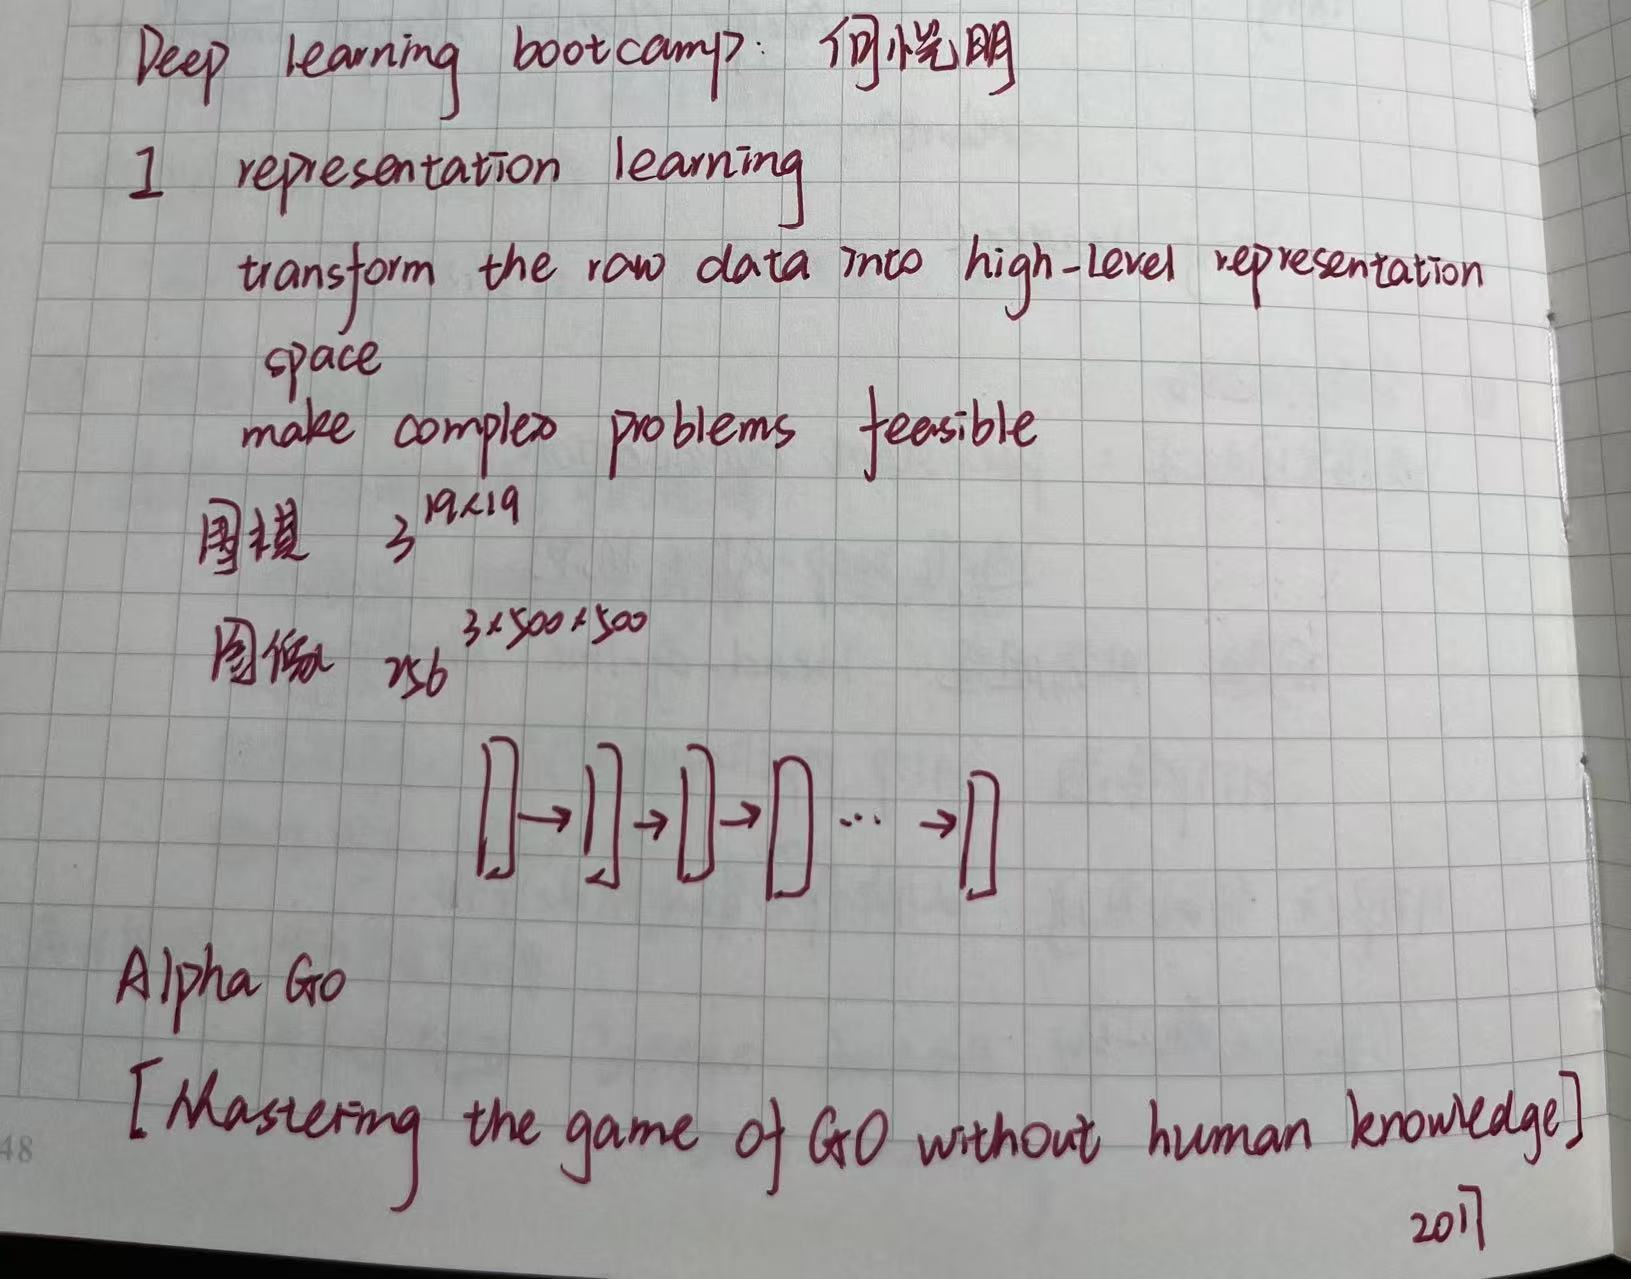 Deep learning bootcamp: 何恺明
1 representation learning
transform the raw data into high-level representation
space
make complex problems feasible
围棋 3^19×19
图像 256^3×500×500
→ → → ... →
Alpha GO
[Mastering the game of GO without human knowledge]
2017
48